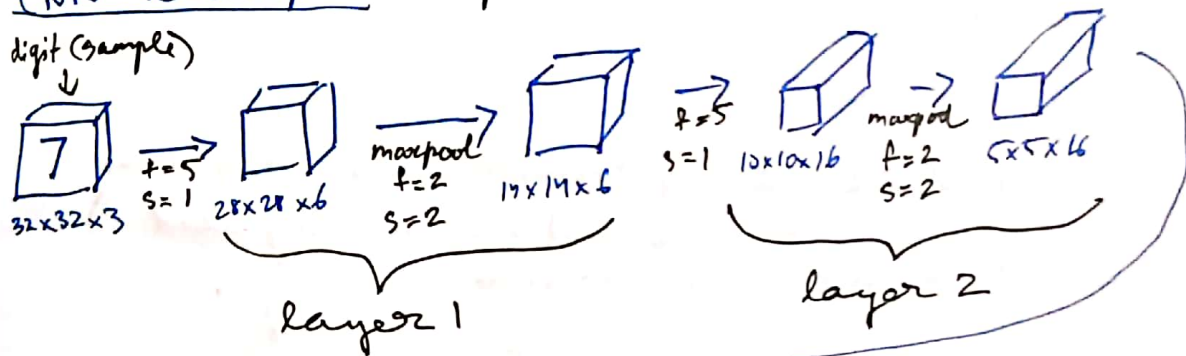 digit (sample)
7
32x32x3
f=5
s=1
28x28x6
maxpool
f=2
s=2
14x14x6
f=5
s=1
10x10x16
maxpool
f=2
s=2
5x5x16
layer 1
layer 2